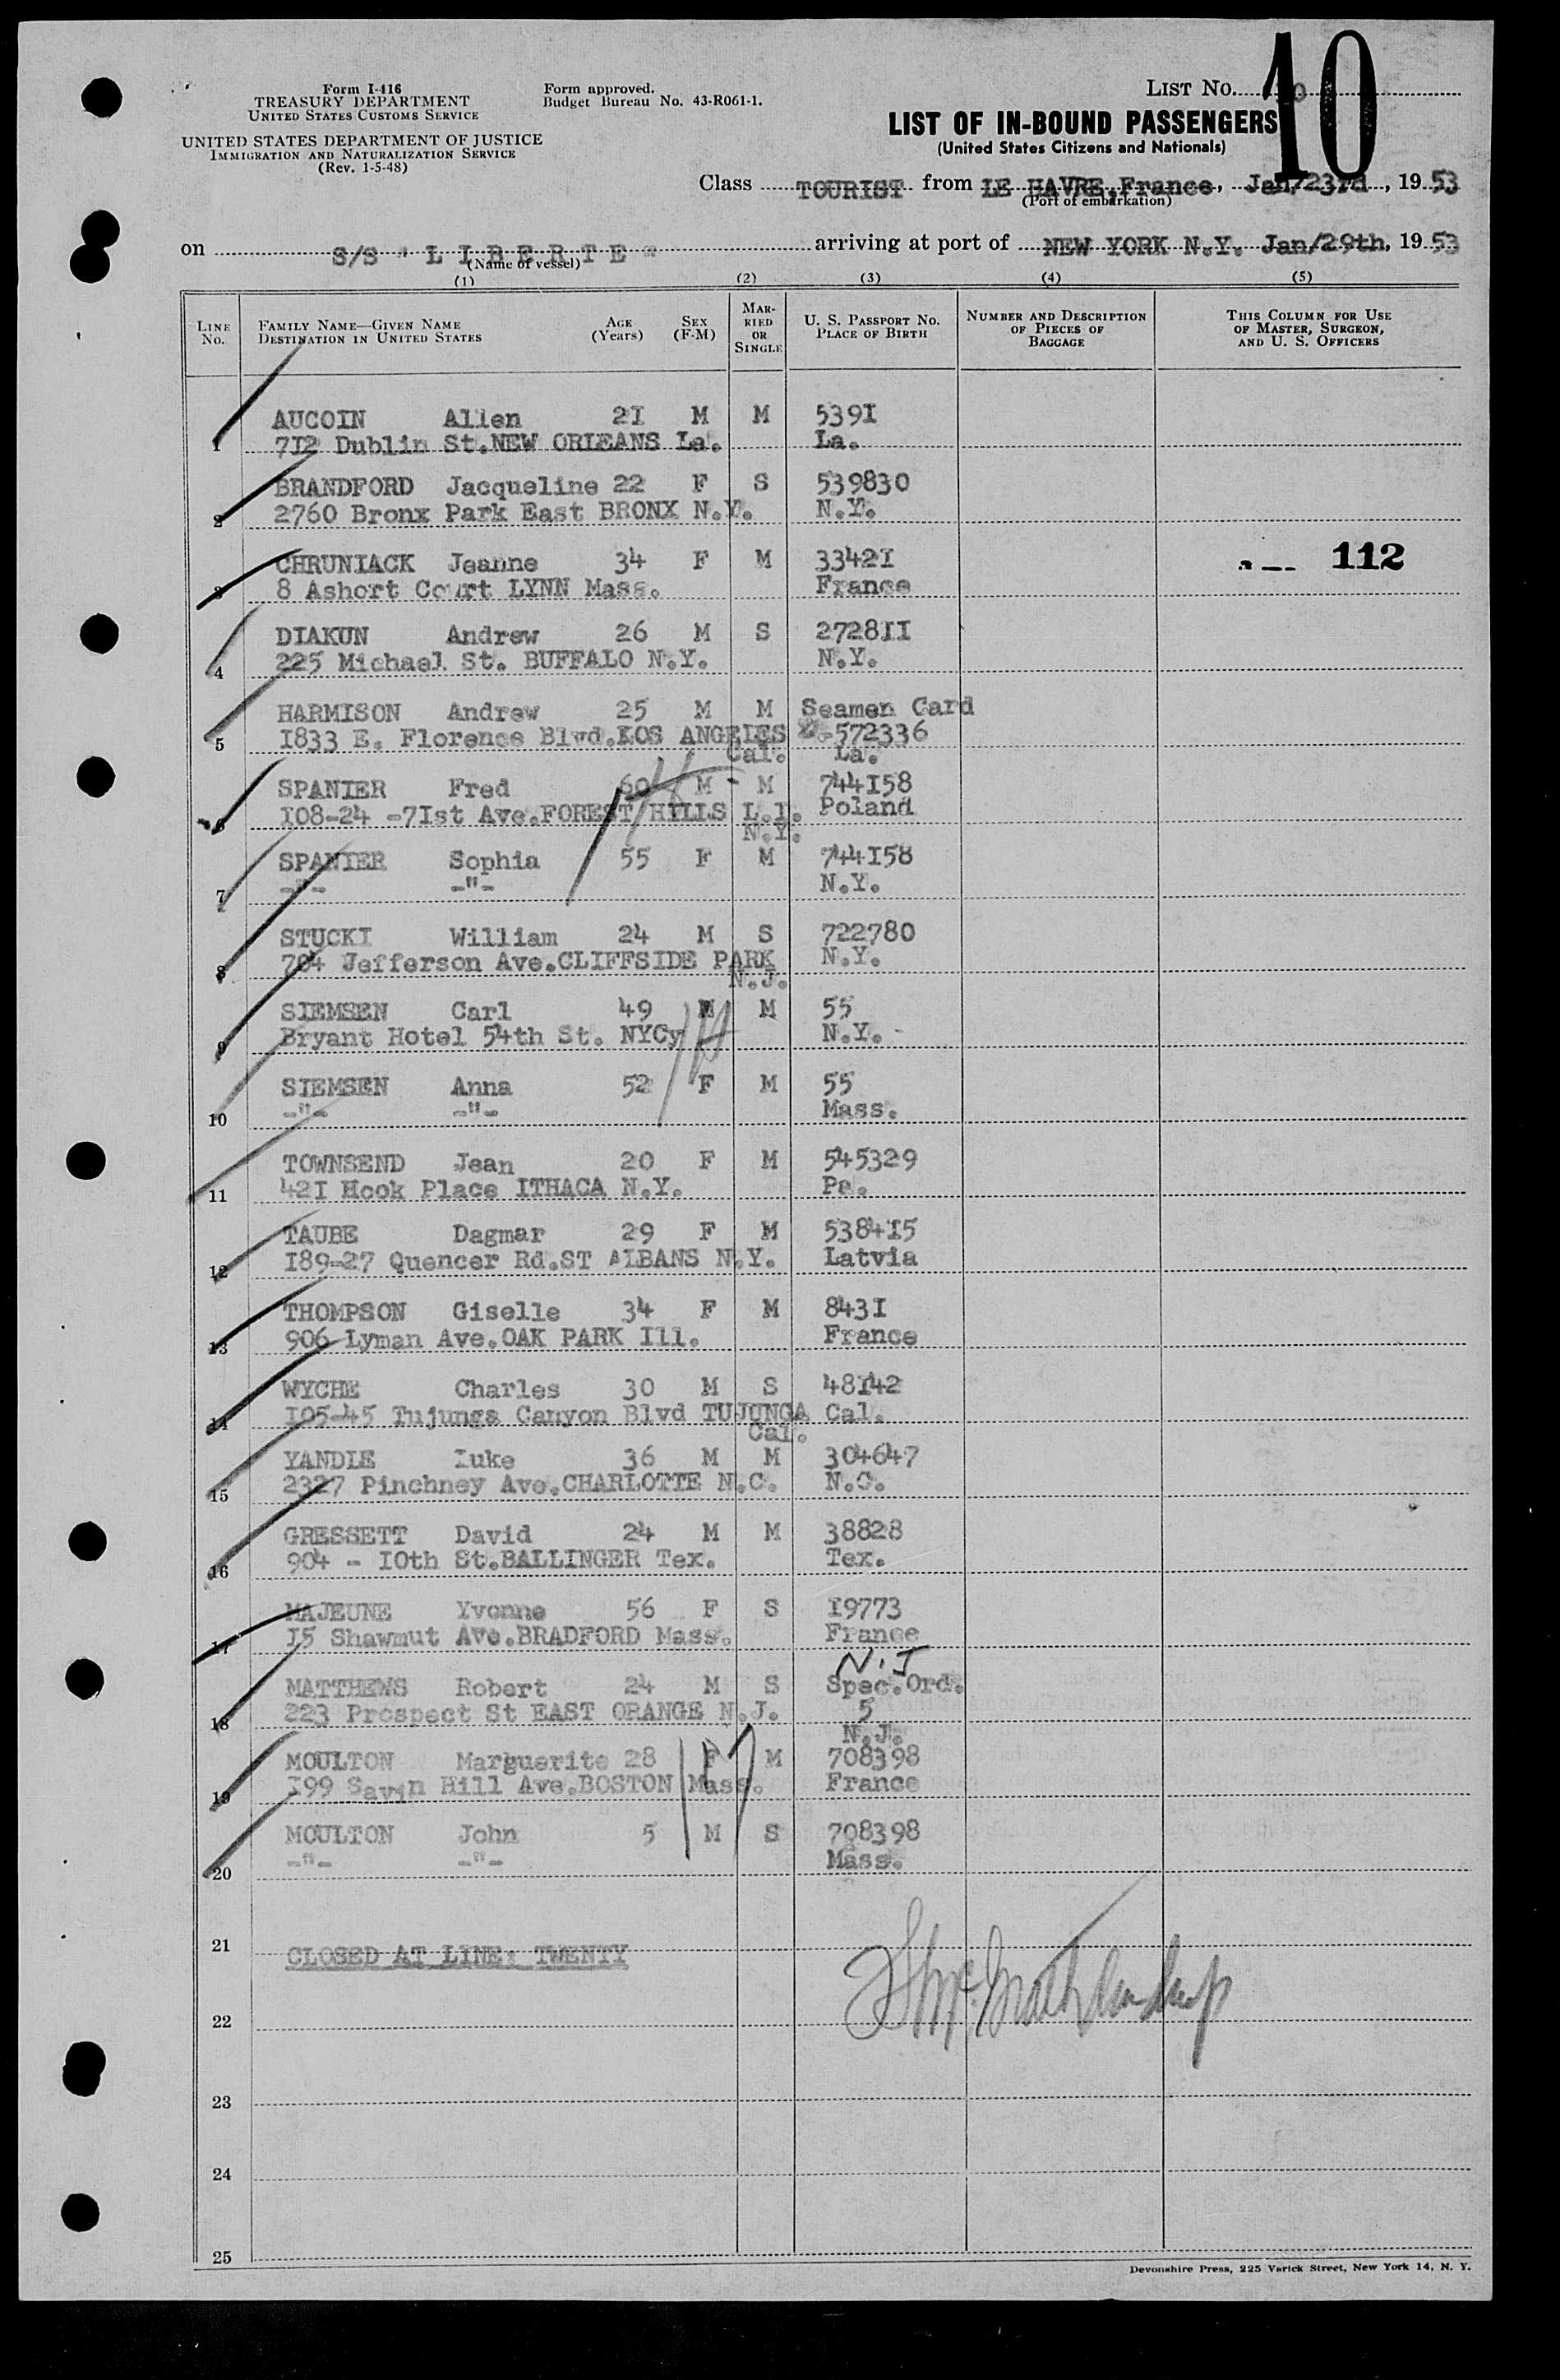 Form I-416
TREASURY DEPARTMENT
UNITED STATES CUSTOMS SERVICE
UNITED STATES DEPARTMENT OF JUSTICE
IMMIGRATION AND NATURALIZATION SERVICE
(Rev. 1-5-48)
Form approved.
Budget Bureau No. 43-R061-1.
LIST No. 10
LIST OF IN-BOUND PASSENGERS
(United States Citizens and Nationals)
Class TOURIST from LE HAVRE, France, Jan/23rd, 1953
(Port of embarkation)
on S/S "LIBERTE" arriving at port of NEW YORK N.Y. Jan/29th, 1953
(Name of vessel)
(1) (2) (3) (4) (5)
LINE No.
FAMILY NAME—GIVEN NAME
DESTINATION IN UNITED STATES
AGE (Years)
SEX (F-M)
MARRIED OR SINGLE
U. S. PASSPORT NO.
PLACE OF BIRTH
NUMBER AND DESCRIPTION OF PIECES OF BAGGAGE
THIS COLUMN FOR USE OF MASTER, SURGEON, AND U. S. OFFICERS
AUCOIN Allen 2I M M 539I
1 7I2 Dublin St.NEW ORLEANS La. La.
BRANDFORD Jacqueline 22 F S 539830
2 2760 Bronx Park East BRONX N.Y. N.Y.
CHRUNIACK Jeanne 34 F M 3342I 112
3 8 Ashort Court LYNN Mass. France
DIAKUN Andrew 26 M S 2728II
4 225 Michael St. BUFFALO N.Y. N.Y.
HARMISON Andrew 25 M M Seamen Card
5 I833 E. Florence Blvd.LOS ANGELES Cal. Z-572336
La.
SPANIER Fred 60 M M 744I58
6 I08-24 -7Ist Ave.FOREST HILLS L.I. N.Y. Poland
SPANIER Sophia 55 F M 744I58
7 -"- -"- N.Y.
STUCKI William 24 M S 722780
8 704 Jefferson Ave.CLIFFSIDE PARK N.J. N.Y.
SIEMSEN Carl 49 M M 55
9 Bryant Hotel 54th St. NYCy N.Y.
SIEMSEN Anna 52 F M 55
10 -"- -"- Mass.
TOWNSEND Jean 20 F M 545329
11 42I Hook Place ITHACA N.Y. Pa.
TAUBE Dagmar 29 F M 5384I5
12 I89-27 Quencer Rd.ST ALBANS N.Y. Latvia
THOMPSON Giselle 34 F M 843I
13 906 Lyman Ave.OAK PARK Ill. France
WYCHE Charles 30 M S 48I42
14 I05-45 Tujunga Canyon Blvd TUJUNGA Cal. Cal.
YANDLE Luke 36 M M 304647
15 2327 Pinchney Ave.CHARLOTTE N.C. N.C.
GRESSETT David 24 M M 38828
16 904 - I0th St.BALLINGER Tex. Tex.
MAJEUNE Yvonne 56 F S I9773
17 I5 Shawmut Ave.BRADFORD Mass. France
N.J
MATTHEWS Robert 24 M S Spec.Ord.
18 223 Prospect St EAST ORANGE N.J. 5
N.J.
MOULTON Marguerite 28 F M 708398
19 I99 Savin Hill Ave.BOSTON Mass. France
MOULTON John 5 M S 708398
20 -"- -"- Mass.
21 CLOSED AT LINE: TWENTY
22
23
24
25
Devonshire Press, 225 Varick Street, New York 14, N. Y.